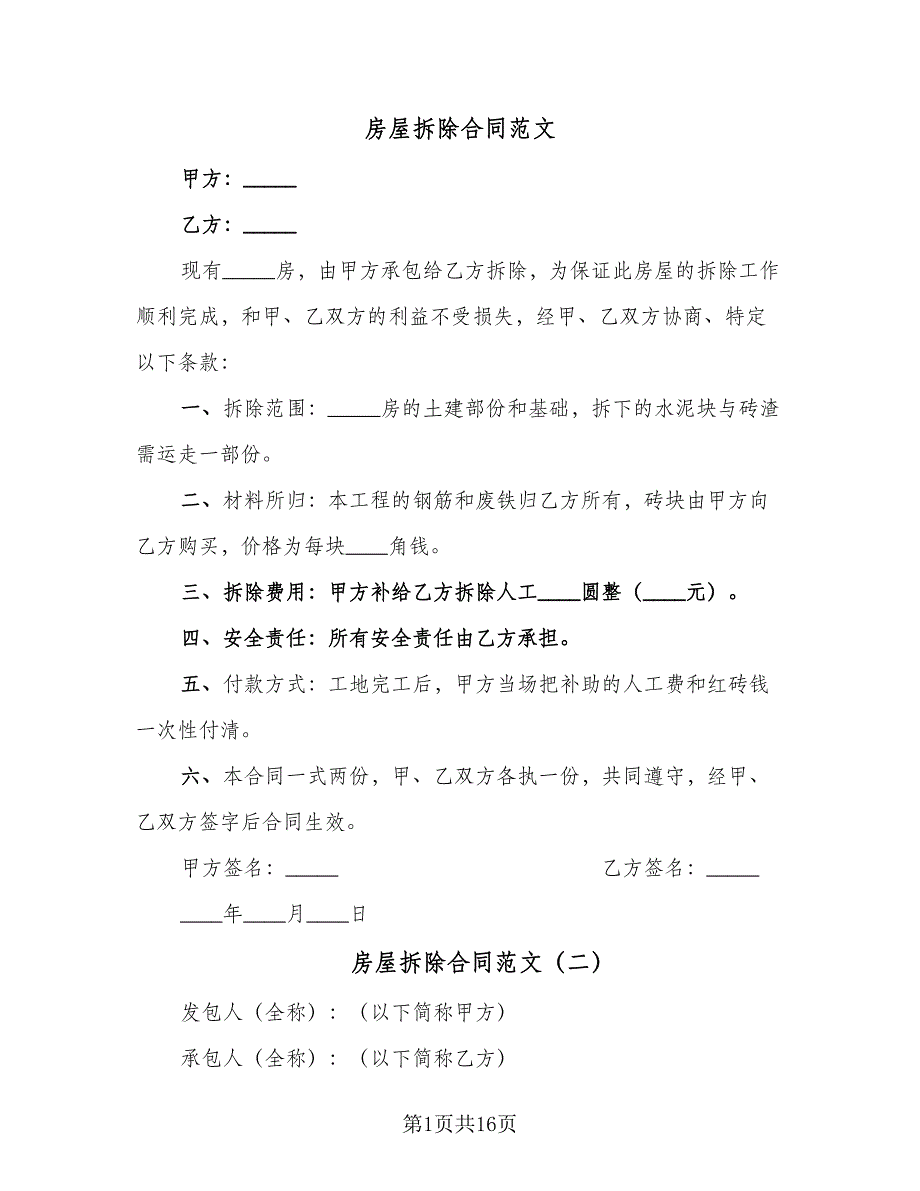 房屋拆除合同范文
甲方：_____
乙方：_____
现有_____房，由甲方承包给乙方拆除，为保证此房屋的拆除工作
顺利完成，和甲、乙双方的利益不受损失，经甲、乙双方协商、特定
以下条款：
一、拆除范围：_____房的土建部份和基础，拆下的水泥块与砖渣
需运走一部份。
二、材料所归：本工程的钢筋和废铁归乙方所有，砖块由甲方向
乙方购买，价格为每块____角钱。
三、拆除费用：甲方补给乙方拆除人工____圆整（____元）。
四、安全责任：所有安全责任由乙方承担。
五、付款方式：工地完工后，甲方当场把补助的人工费和红砖钱
一次性付清。
六、本合同一式两份，甲、乙双方各执一份，共同遵守，经甲、
乙双方签字后合同生效。
甲方签名：_____ 乙方签名：_____
____年____月____日
房屋拆除合同范文（二）
发包人（全称）：（以下简称甲方）
承包人（全称）：（以下简称乙方）
第1页共16页